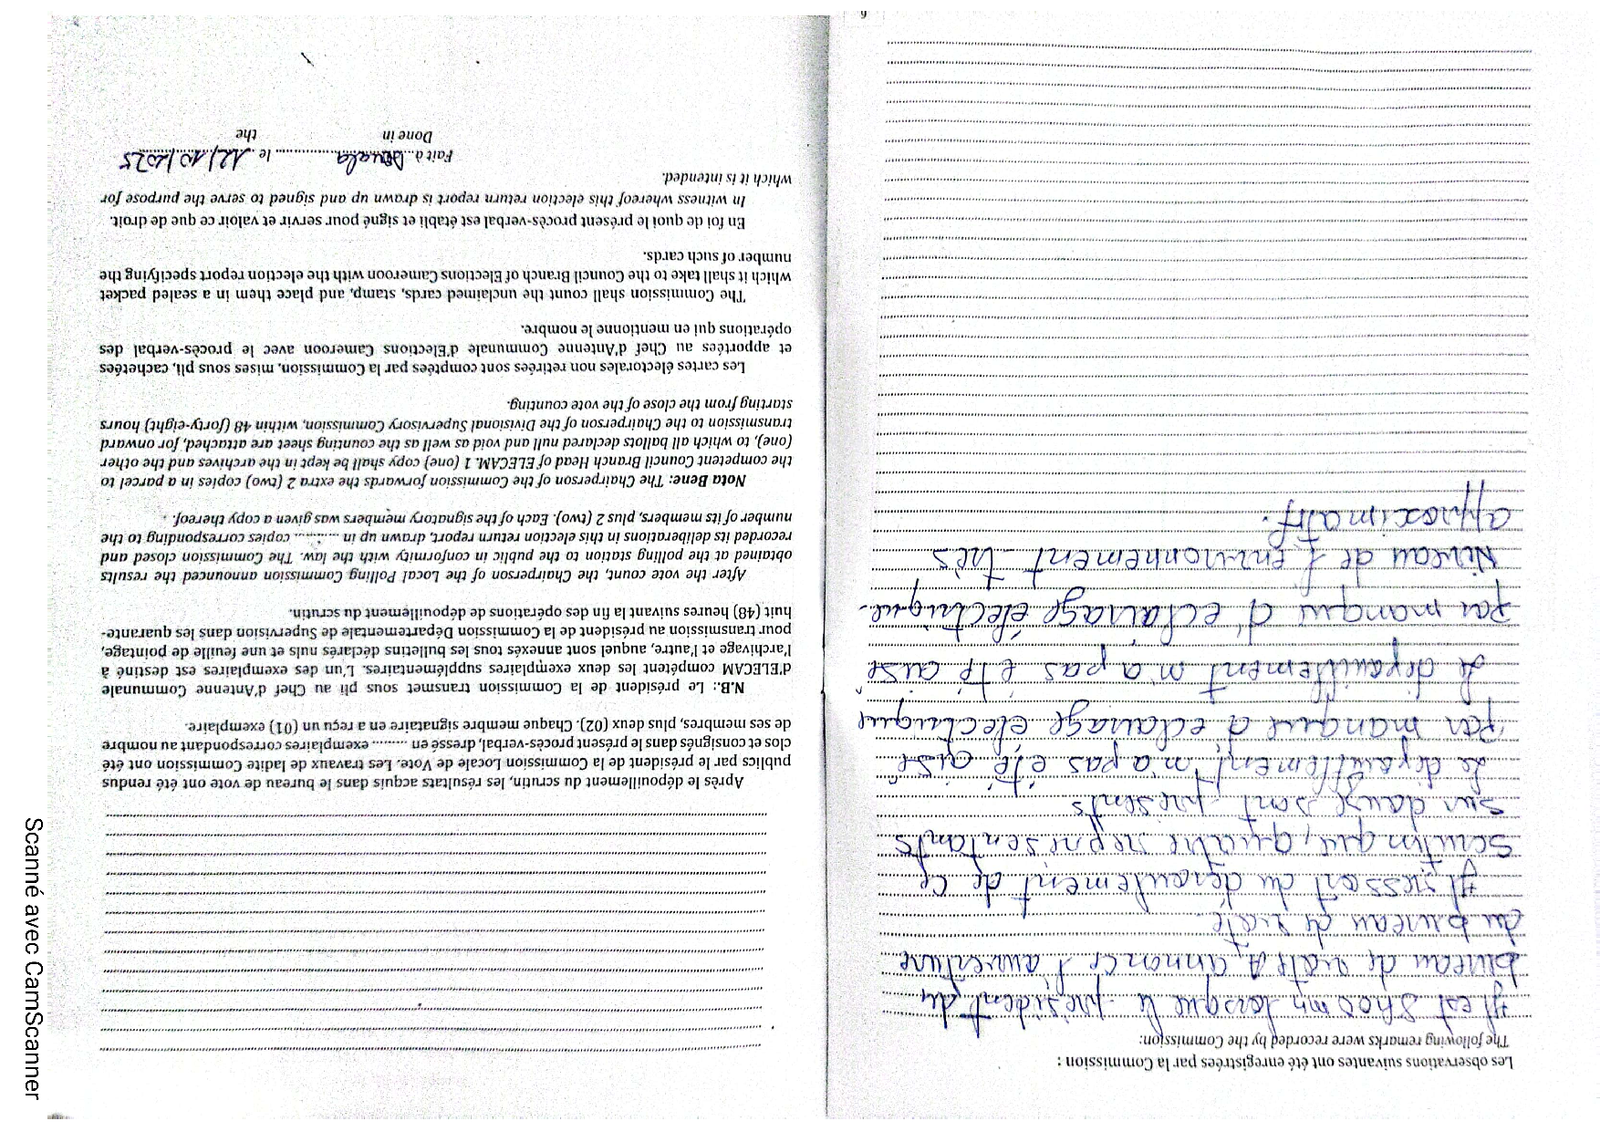 Les observations suivantes ont été enregistrées par la Commission :
The following remarks were recorded by the Commission:
Il est 8h00mn lorsque le président du
bureau de vote A annoncé l'ouverture
du bureau de vote.
Il ressort du déroulement de ce
scrutin que, quatre représentants
sur douze sont présents
Le dépouillement n'a pas été aisé
par manque d'éclairage électrique
Le dépouillement n'a pas été aisé
par manque d'éclairage électrique.
Niveau de l'environnement très
approximatif.
6
Après le dépouillement du scrutin, les résultats acquis dans le bureau de vote ont été rendus
publics par le président de la Commission Locale de Vote. Les travaux de ladite Commission ont été
clos et consignés dans le présent procès-verbal, dressé en ......... exemplaires correspondant au nombre
de ses membres, plus deux (02). Chaque membre signataire en a reçu un (01) exemplaire.
N.B.: Le président de la Commission transmet sous pli au Chef d'Antenne Communale
d'ELECAM compétent les deux exemplaires supplémentaires. L'un des exemplaires est destiné à
l'archivage et l'autre, auquel sont annexés tous les bulletins déclarés nuls et une feuille de pointage,
pour transmission au président de la Commission Départementale de Supervision dans les quarante-
huit (48) heures suivant la fin des opérations de dépouillement du scrutin.
After the vote count, the Chairperson of the Local Polling Commission announced the results
obtained at the polling station to the public in conformity with the law. The Commission closed and
recorded its deliberations in this election return report, drawn up in .......... copies corresponding to the
number of its members, plus 2 (two). Each of the signatory members was given a copy thereof.
Nota Bene: The Chairperson of the Commission forwards the extra 2 (two) copies in a parcel to
the competent Council Branch Head of ELECAM. 1 (one) copy shall be kept in the archives and the other
(one), to which all ballots declared null and void as well as the counting sheet are attached, for onward
transmission to the Chairperson of the Divisional Supervisory Commission, within 48 (forty-eight) hours
starting from the close of the vote counting.
Les cartes électorales non retirées sont comptées par la Commission, mises sous pli, cachetées
et apportées au Chef d'Antenne Communale d'Elections Cameroon avec le procès-verbal des
opérations qui en mentionne le nombre.
The Commission shall count the unclaimed cards, stamp, and place them in a sealed packet
which it shall take to the Council Branch of Elections Cameroon with the election report specifying the
number of such cards.
En foi de quoi le présent procès-verbal est établi et signé pour servir et valoir ce que de droit.
In witness whereof this election return report is drawn up and signed to serve the purpose for
which it is intended.
Fait à Douala le 12/10/2025
Done in the
Scanné avec CamScanner